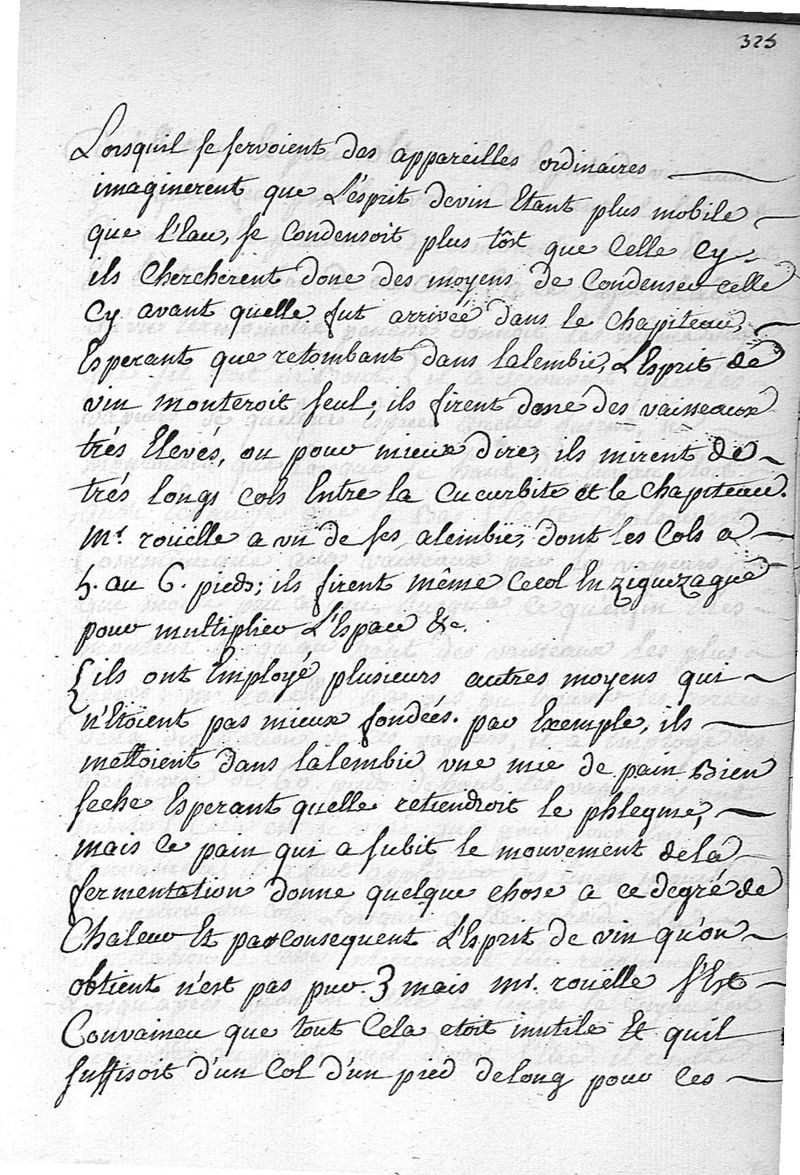 325
Lorsquil se servoient des appareilles ordinaires
imaginerent que L'esprit devin Etant plus mobile
que l'Eau, se Condensoit plus tôst que Celle Cy
ils Chercherent donc des moyens de Condenser celle
Cy avant quelle fut arrivée dans le chapiteau,
Esperant que retombant dans lalembic, L'Esprit de
vin monteroit seul; ils firent donc des vaisseaux
trés Elevés, ou pour mieux dire, ils mirent de
trés longs cols Entre la Cucurbite et le chapiteau.
Mr. roüelle a vu de ses alembic, dont les Cols a
5. au 6. pieds; ils firent même Cecol En ziguezague
pour multiplier L'Espace &c.
ils ont Employé plusieurs autres moyens qui
n'Etoient pas mieux fondées. par Exemple, ils
mettoient dans lalembic une mie de pain Bien
seche Esperant quelle retiendroit le phlegme,
mais ce pain qui a subit le mouvement dela
fermentation donne quelque chose a ce degré de
Chaleur Et par consequent L'Esprit de vin qu'on
obtient n'est pas pur 3 mais mr. roüelle s'Est
Convaincu que tout Cela etoit inutile Et quil
suffisoit d'un Col d'un pied delong pour ces